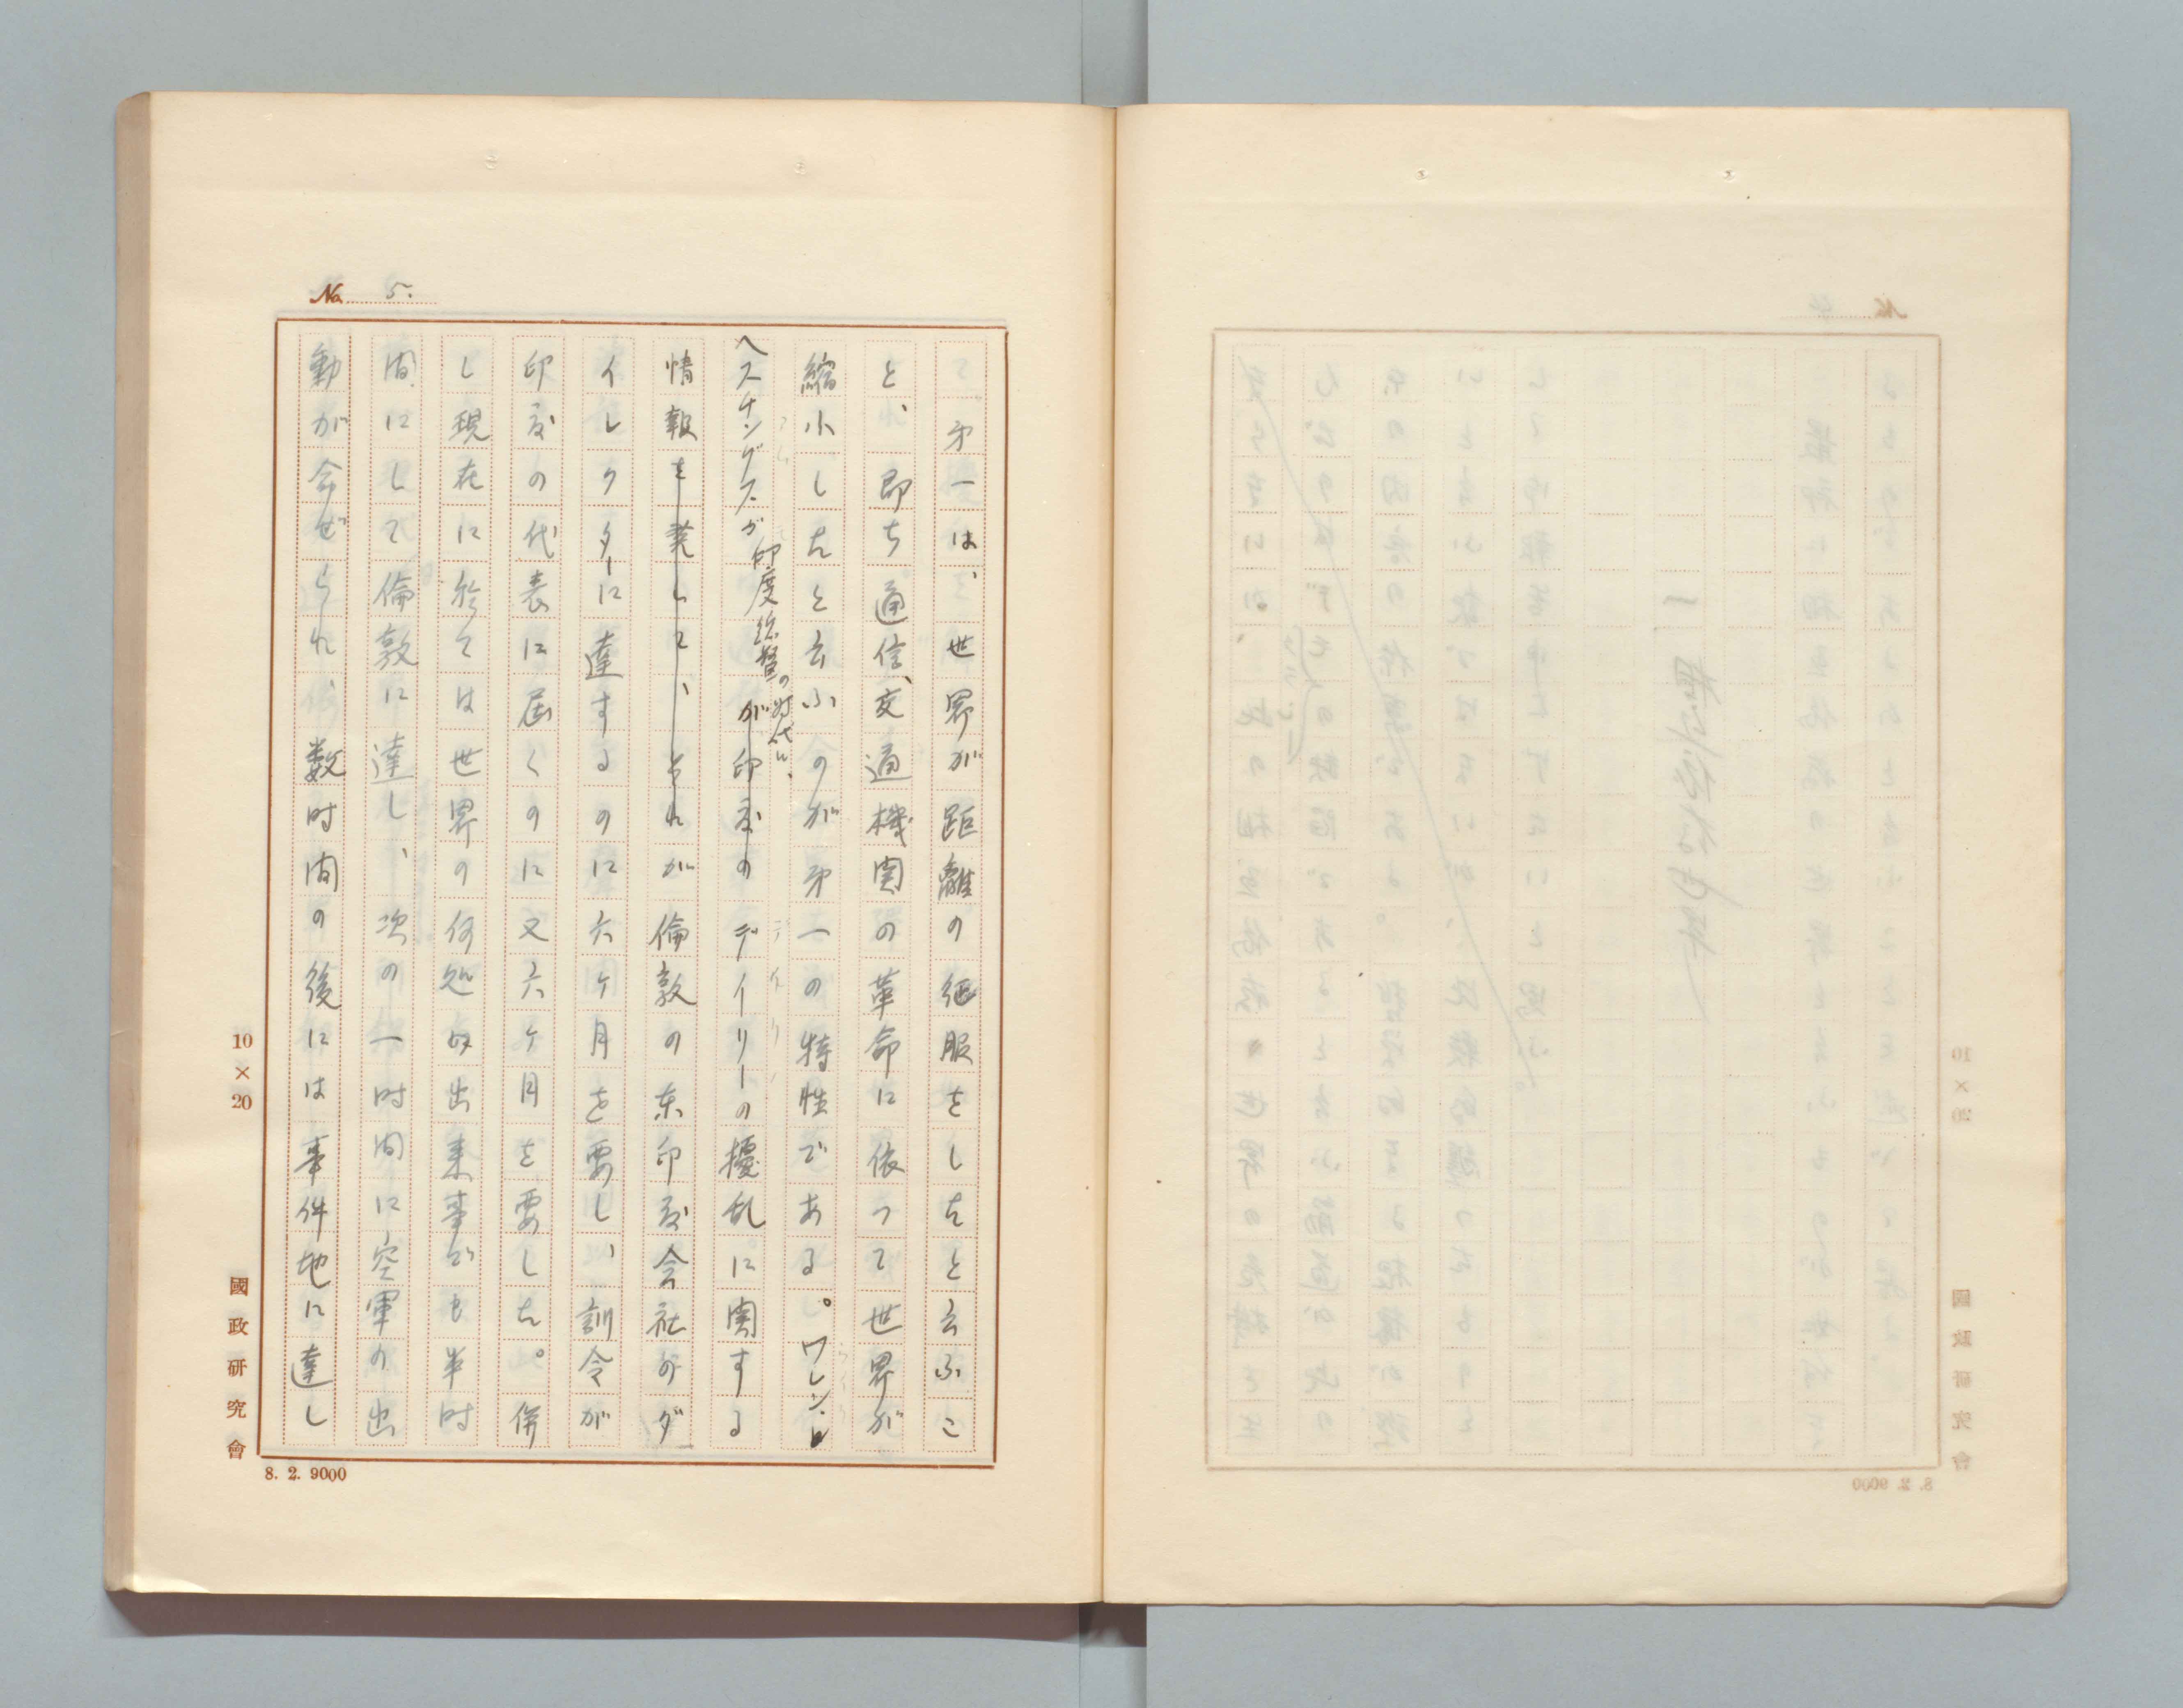 No. 5.
て、才一は、世界が距離の征服をしたと云ふこ
と、即ち通信、交通機関の革命に依つて世界が
縮小したと云ふのが才一の特性である。ワレン・
ヘスチングスが印度総督の時代に、が印度のデイリーの擾乱に関する
情報を発して、それが倫敦の東印度会社のダ
イレクターに達するのに六ケ月を要し、訓令が
印度の代表に届くのに又六ケ月を要した。併
し現在に於ては世界の何処の出来事でも半時
間にして倫敦に達し、次の一時間に空軍の出
動が命ぜられ、数時間の後には事件地に達し
10×20
國政研究會
8. 2. 9000